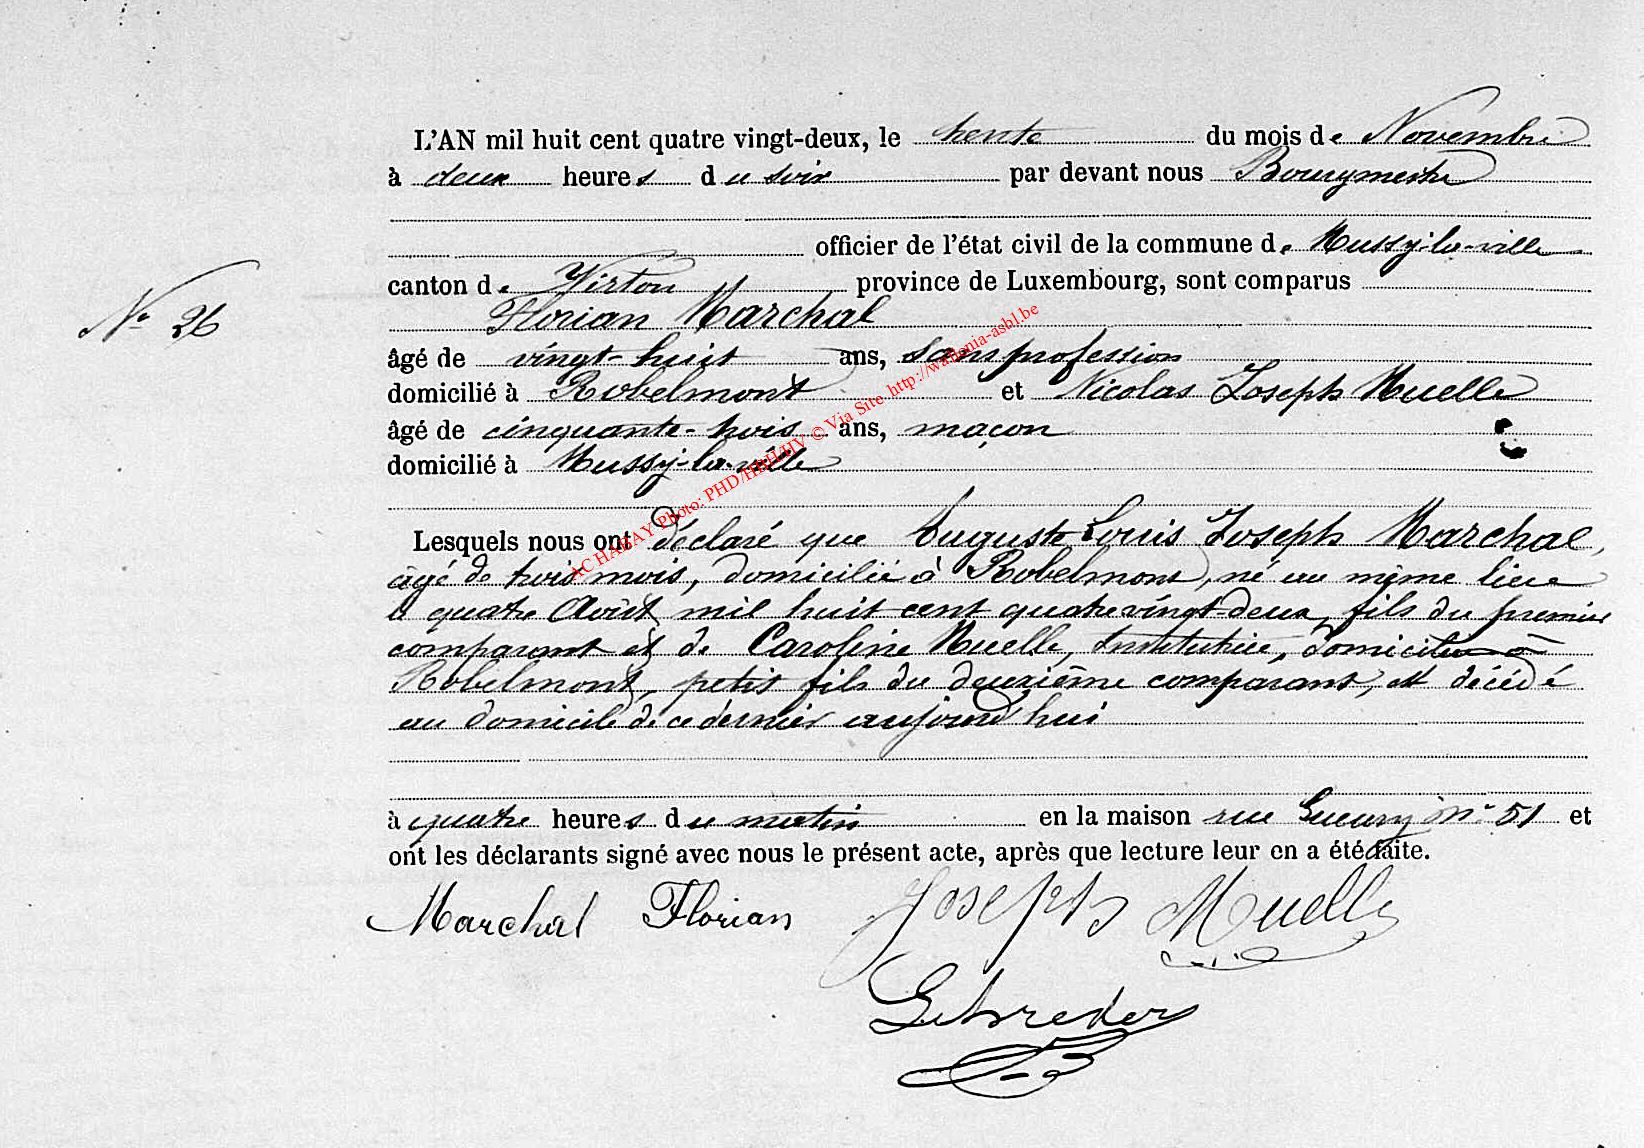 L'AN mil huit cent quatre vingt-deux, le trente du mois de Novembre
à deux heures du soir par devant nous Bourgmestre
officier de l'état civil de la commune de Mussy-la-ville
canton de Virton province de Luxembourg, sont comparus
N° 26
Florian Marchal
âgé de vingt-huit ans, sans profession
domicilié à Robelmont et Nicolas Joseph Muelle
âgé de cinquante-trois ans, maçon
domicilié à Mussy-la-ville
ACHABAY Photo: PHD/HBH/HV © Via Site http://wallonia-asbl.be
Lesquels nous ont déclaré que Auguste Louis Joseph Marchal,
âgé de trois mois, domicilié à Robelmont, né au même lieu
le quatre Août mil huit cent quatre vingt-deux, fils du premier
comparant et de Caroline Muelle, Institutrice, domiciliée à
Robelmont, petit fils du deuxième comparant, est décédé
au domicile de ce dernier aujourd'hui
à quatre heures du matin en la maison rue N° 51 et
ont les déclarants signé avec nous le présent acte, après que lecture leur en a été faite.
Marchal Florian Joseph Muelle